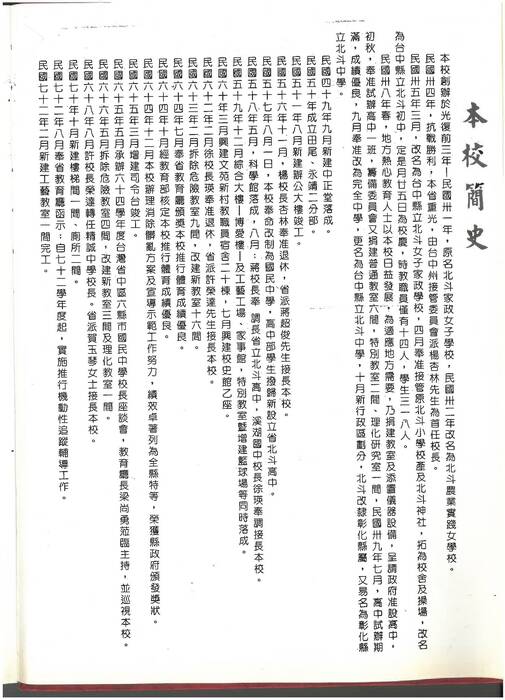 本校簡史
本校創辦於光復前三年—民國卅一年,原名北斗家政女子學校,民國卅二年改名為北斗農業實踐女學校。
民國卅四年,抗戰勝利,本省重光,由台中州接管委員會派楊杏林先生為首任校長。
民國卅五年三月,改名為台中縣立北斗女子家政學校,四月奉准接管原北斗小學校產及北斗神社,拓為校舍及操場,改名
為台中縣立北斗初中,定是月廿五日為校慶,時教職員僅有十四人,學生三一八人。
民國卅八年春,地方熱心教育人士以本校日益發展,為適應地方需要,乃捐建教室及添置儀器設備,呈請政府准設高中,
初秋,奉准試辦高中一班,籌備委員會又捐建普通教室六間,特別教室二間、理化研究室一間,民國卅九年七月,高中試辦期
滿,成績優良,九月奉准改為完全中學,更名為台中縣立北斗中學,十月新行政區劃分,北斗改隸彰化縣屬,又易名為彰化縣
立北斗中學。
民國四十九年九月新建中正堂落成。
民國五十年成立田尾、永靖二分部。
民國五十一年八月新建辦公大樓竣工。
民國五十六年十一月,楊校長杏林奉准退休,省派蔣超俊先生接長本校。
民國五十七年八月一日,本校奉命改制為國民中學,高中部學生撥歸新設立省北斗高中。
民國五十八年五月,科學館落成,八月:蔣校長奉 調長省立北斗高中,溪湖國中校長徐瑛奉調接長本校。
民國五十九年十二月綜合大樓—博愛樓—及工藝工場、家事館,特別教室暨增建籃球場等同時落成。
民國六十年三月興建文苑新村教職員宿舍二十棟,七月興建校史館乙座。
民國六十二年二月徐校長瑛奉准退休,省派許榮達先生接長本校。
民國六十三年二月拆除危險教室九間,改建新教室十六間。
民國六十四年七月奉省教育廳頒獎本校推行體育成績優良。
民國六十四年十月經教育部核定本校推行體育成績優良。
民國六十四年十二月本校辦理消除髒亂方案及宣導示範工作努力,績效卓著列為全縣特等,榮獲縣政府頒發獎狀。
民國六十五年三月增建司令台竣工。
民國六十五年五月承辦六十四學年度台灣省中區六縣市國民中學校長座談會,教育廳長梁尚勇蒞臨主持,並巡視本校。
民國六十六年五月拆除危險教室四間,改建新教室三間及理化教室一間。
民國六十八年八月許校長榮達轉任精誠中學校長。省派賀玉琴女士接長本校。
民國七十年十月新建樓梯間一間、廁所二間。
民國七十二年八月奉省教育廳函示:自七十二學年度起,實施推行機動性追蹤輔導工作。
民國七十二年二月新建工藝教室一間完工。